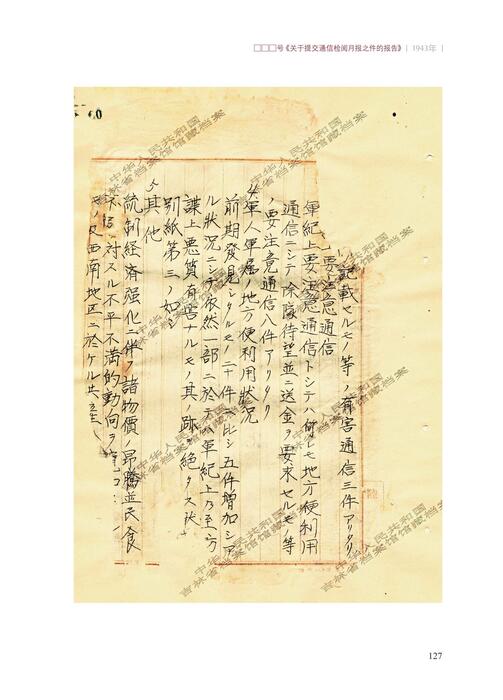 □□□号《关于提交通信检阅月报之件的报告》 | 1943年 |
中华人民共和国
吉林省档案馆馆藏档案
記載セルモノ等ノ有害通信三件アリタリ
要注意通信
軍紀上要注意通信トシテハ何レモ地方便利用
通信ニシテ除隊待望並ニ送金ヲ要求セルモノ等
ノ要注意通信八件アリタリ
軍人軍属ノ地方便利用状況
前期發見シタルモノ二十件ニ比シ五件増加シア
ル状況ニシテ依然一部ニ於テハ軍紀上乃至防
諜上悪質有害ナルモノ其ノ跡ヲ絶タス状
別紙第三ノ如シ
其他
統制経済强化ニ伴フ諸物價ノ昂騰並民食
対スル不平不満的動向ヲ
西南地区ニ於ケル共
中华人民共和国
吉林省档案馆馆藏档案
127